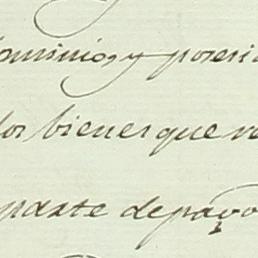 ominios, y posesi
los bienes que re
parte de pago